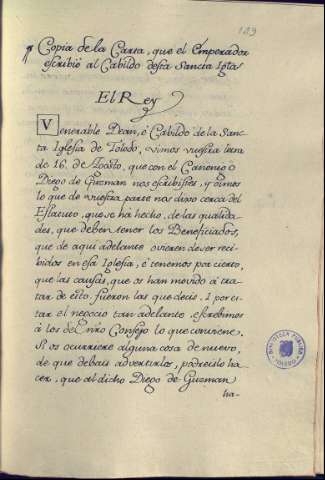 189
Copia de la Carta, que el Emperador
escribiò al Cabildo desta Sancta Iglã
El Rey
Venerable Dean, è Cabildo de la Sanc
ta Iglesia de Toledo, vimos vuestra letra
de 16. de Agosto, que con el Canonigo
Diego de Guzman nos escribistes, y oimos
lo que de vuestra parte nos dixo cerca del
Estatuto, que se ha hecho, de las qualida-
des, que deben tener los Beneficiados,
que de aqui adelante ovieren de ser reci-
bidos en esa Iglesia, è tenemos por cierto,
que las causas, que os han movido à tra-
tar de esto, fueron las que decis. I por es-
tar el negocio tan adelante, escrebimos
à los de nrõ Consejo lo que conviene.
Si os ocurriere alguna cosa de nuevo,
de que debais advertirlos, podreislo ha-
cer, que al dicho Diego de Guzman
ha-
BIBLIOTECA PUBLICA
TOLEDO